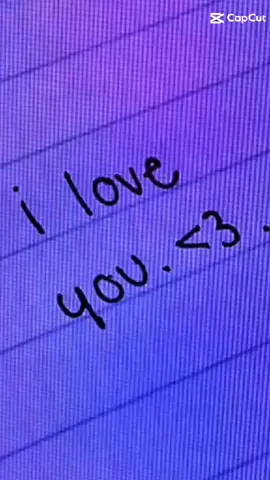 CapCut
i love
you. <3.